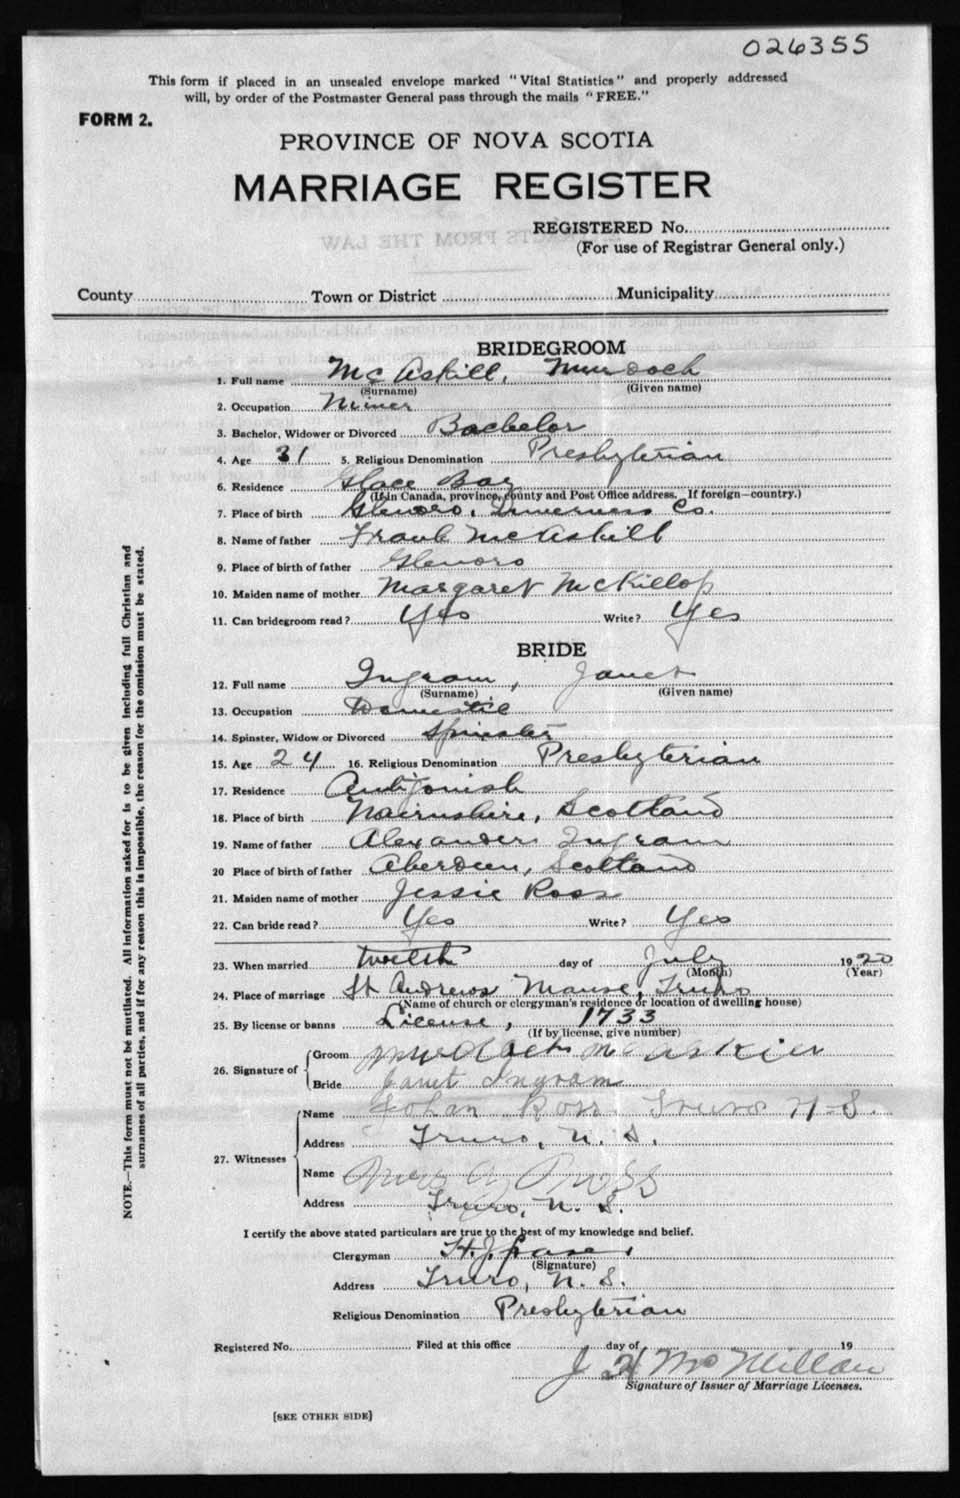 026355
This form if placed in an unsealed envelope marked "Vital Statistics" and properly addressed
will, by order of the Postmaster General pass through the mails "FREE."
FORM 2.
PROVINCE OF NOVA SCOTIA
MARRIAGE REGISTER
REGISTERED No.
(For use of Registrar General only.)
County Town or District Municipality
BRIDEGROOM
1. Full name McAskill, Murdoch
(Surname) (Given name)
2. Occupation Miner
3. Bachelor, Widower or Divorced Bachelor
4. Age 31 5. Religious Denomination Presbyterian
6. Residence Glace Bay
(If in Canada, province, county and Post Office address. If foreign—country.)
7. Place of birth Glenoro, Inverness Co.
8. Name of father Frank McAskill
9. Place of birth of father Glenoro
10. Maiden name of mother Margaret McKillop
11. Can bridegroom read? Yes Write? Yes
BRIDE
12. Full name Ingram, Janet
(Surname) (Given name)
13. Occupation Domestic
14. Spinster, Widow or Divorced Spinster
15. Age 24 16. Religious Denomination Presbyterian
17. Residence Antigonish
18. Place of birth Nairnshire, Scotland
19. Name of father Alexander Ingram
20 Place of birth of father Aberdeen, Scotland
21. Maiden name of mother Jessie Ross
22. Can bride read? Yes Write? Yes
23. When married twelth day of July 1920
(Month) (Year)
24. Place of marriage St Andrews Manse, Truro
(Name of church or clergyman's residence or location of dwelling house)
25. By license or banns License, 1733
(If by license, give number)
26. Signature of Groom Murdoch McAskill
Bride Janet Ingram
27. Witnesses Name Johan Ross Truro N-S.
Address Truro, N. S.
Name Mrs A Ross
Address Truro, N. S.
I certify the above stated particulars are true to the best of my knowledge and belief.
Clergyman H. J.
(Signature)
Address Truro, N. S.
Religious Denomination Presbyterian
Registered No. Filed at this office day of 19
J H McMillan
Signature of Issuer of Marriage Licenses.
[SEE OTHER SIDE]
NOTE.—This form must not be mutilated. All information asked for is to be given including full Christian and
surnames of all parties, and if for any reason this is impossible, the reason for the omission must be stated.